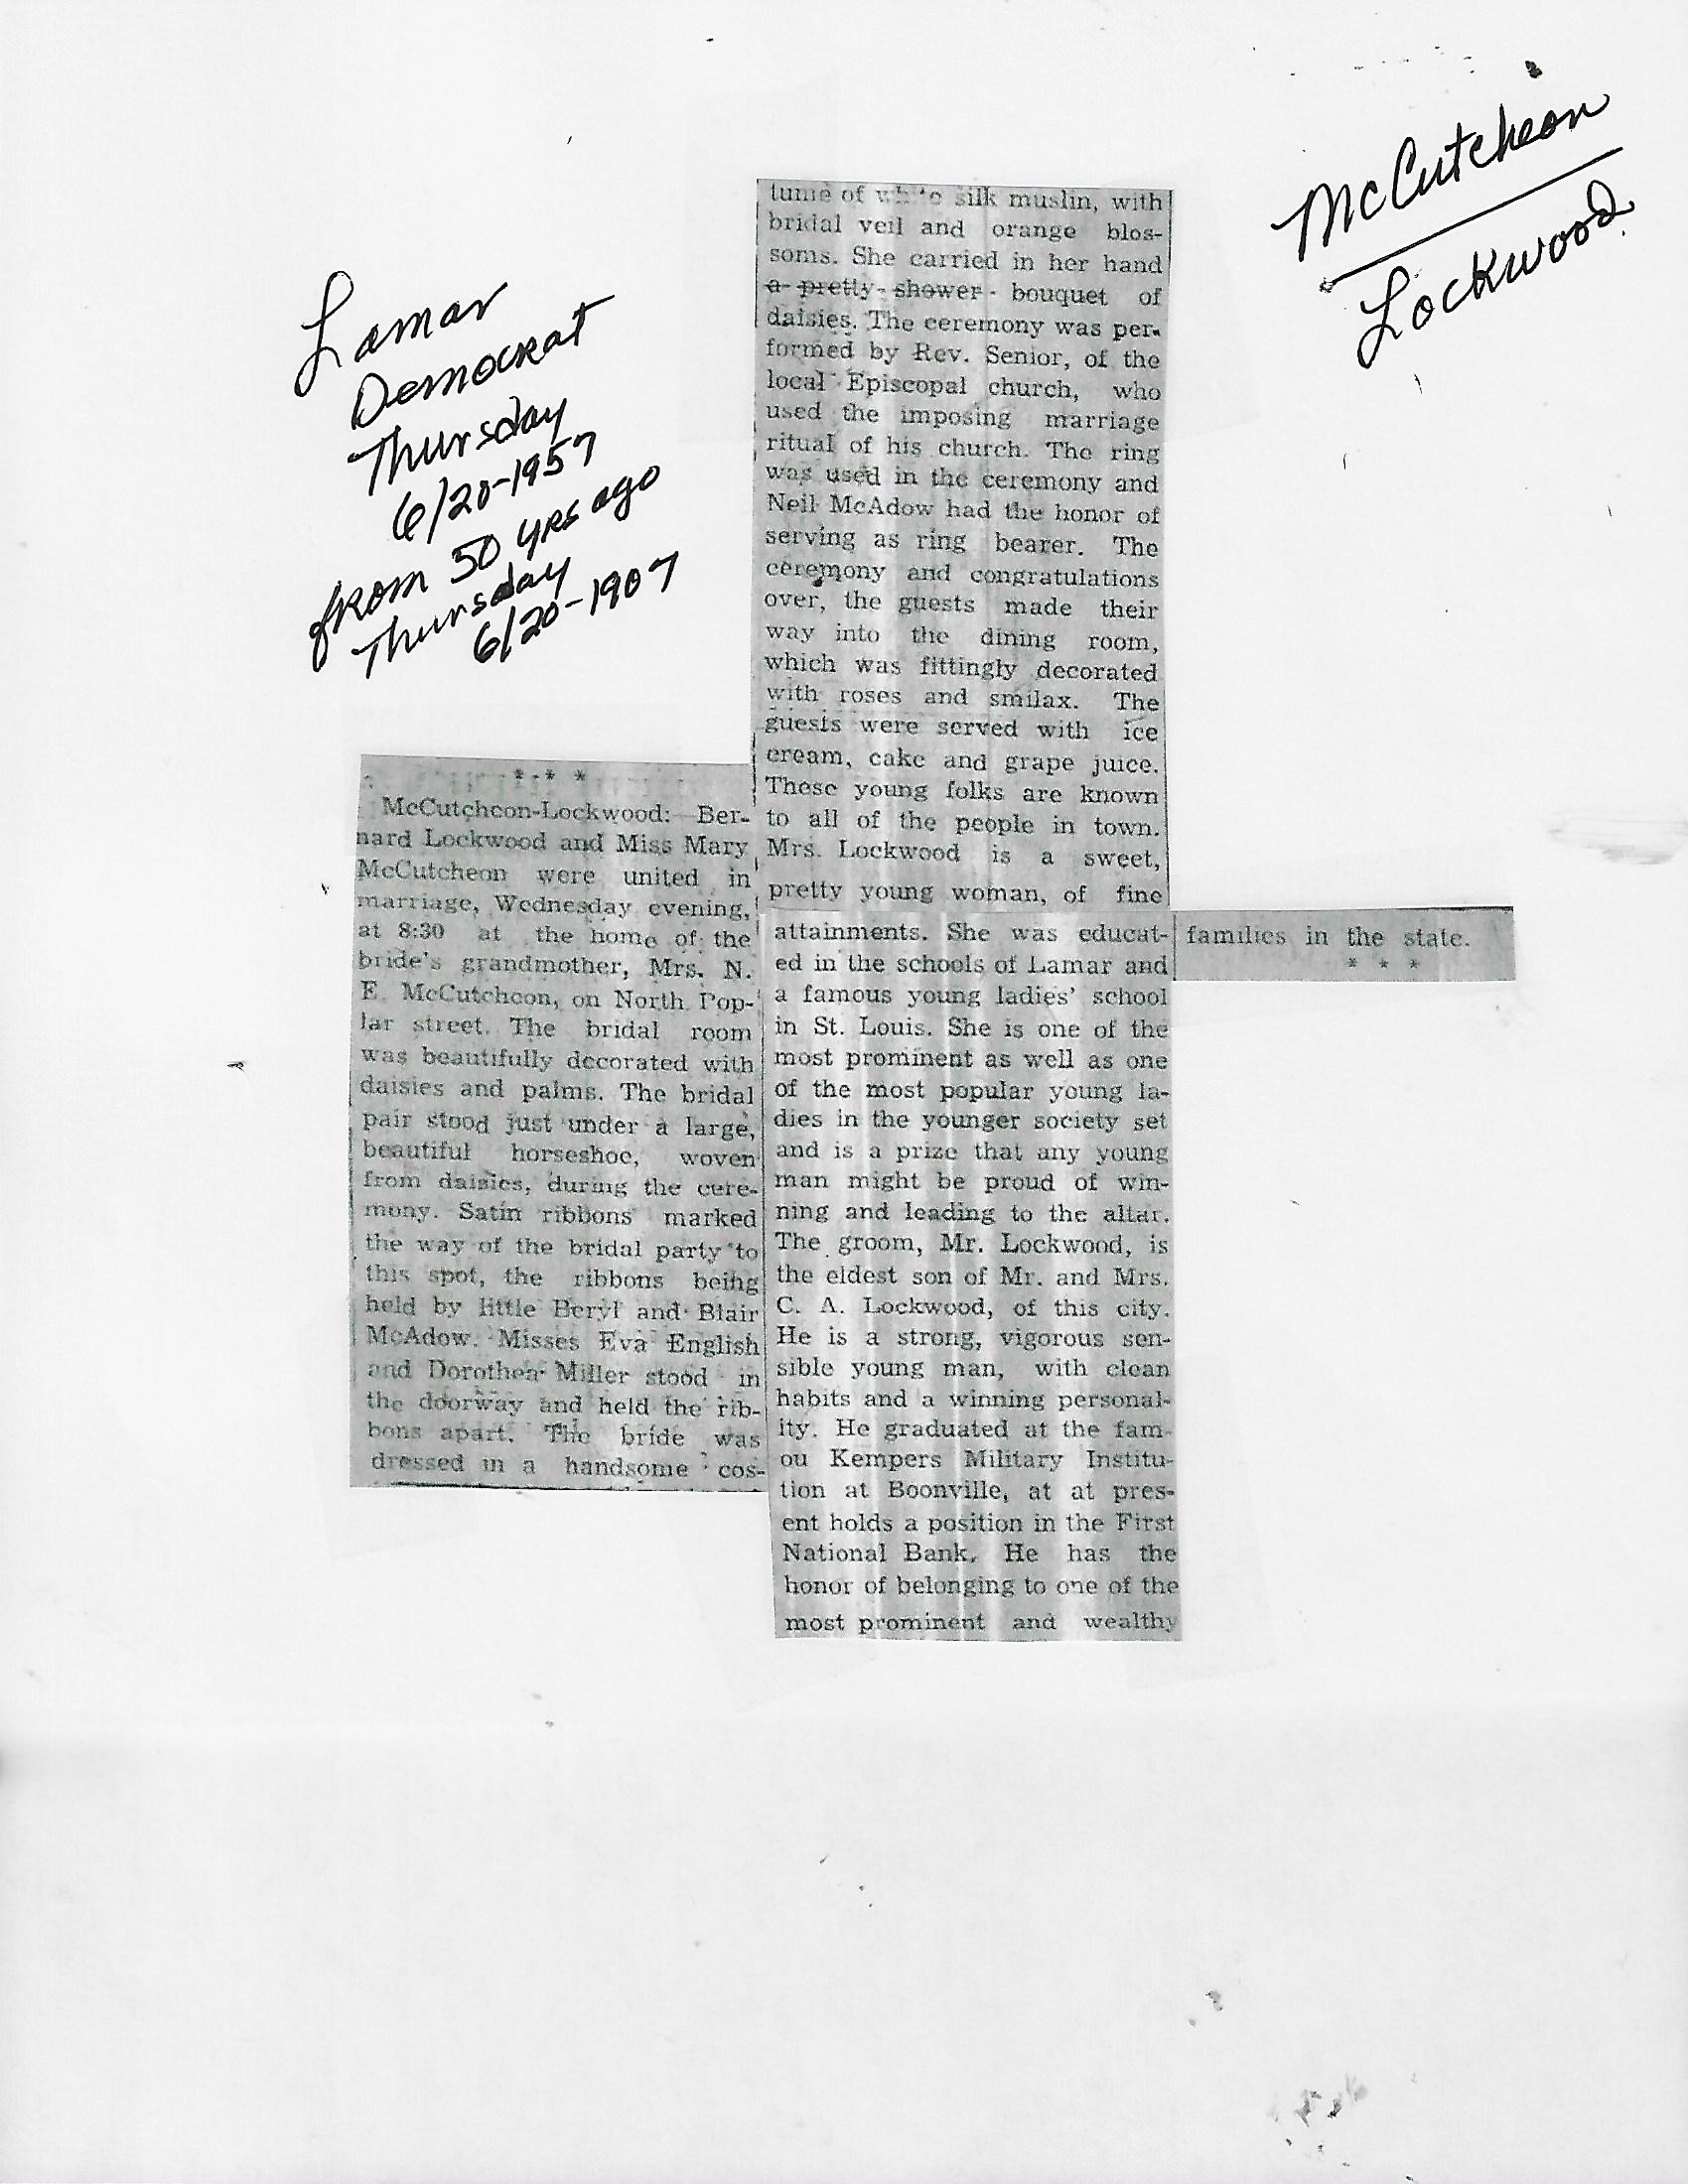 McCutcheon
Lockwood
Lamar
Democrat
Thursday
6/20-1957
from 50 yrs ago
Thursday
6/20-1907
* * *
McCutcheon-Lockwood: Ber-
nard Lockwood and Miss Mary
McCutcheon were united in
marriage, Wednesday evening,
at 8:30 at the home of the
bride's grandmother, Mrs. N.
E. McCutcheon, on North Pop-
lar street. The bridal room
was beautifully decorated with
daisies and palms. The bridal
pair stood just under a large,
beautiful horseshoe, woven
from daisies, during the cere-
mony. Satin ribbons marked
the way of the bridal party to
this spot, the ribbons being
held by little Beryl and Blair
McAdow. Misses Eva English
and Dorothea Miller stood in
the doorway and held the rib-
bons apart. The bride was
dressed in a handsome cos-
tume of white silk muslin, with
bridal veil and orange blos-
soms. She carried in her hand
a pretty shower bouquet of
daisies. The ceremony was per-
formed by Rev. Senior, of the
local Episcopal church, who
used the imposing marriage
ritual of his church. The ring
was used in the ceremony and
Neil McAdow had the honor of
serving as ring bearer. The
ceremony and congratulations
over, the guests made their
way into the dining room,
which was fittingly decorated
with roses and smilax. The
guests were served with ice
cream, cake and grape juice.
These young folks are known
to all of the people in town.
Mrs. Lockwood is a sweet,
pretty young woman, of fine
attainments. She was educat-
ed in the schools of Lamar and
a famous young ladies' school
in St. Louis. She is one of the
most prominent as well as one
of the most popular young la-
dies in the younger society set
and is a prize that any young
man might be proud of win-
ning and leading to the altar.
The groom, Mr. Lockwood, is
the eldest son of Mr. and Mrs.
C. A. Lockwood, of this city.
He is a strong, vigorous sen-
sible young man, with clean
habits and a winning personal-
ity. He graduated at the fam-
ou Kempers Military Institu-
tion at Boonville, at at pres-
ent holds a position in the First
National Bank. He has the
honor of belonging to one of the
most prominent and wealthy
families in the state.
* * *